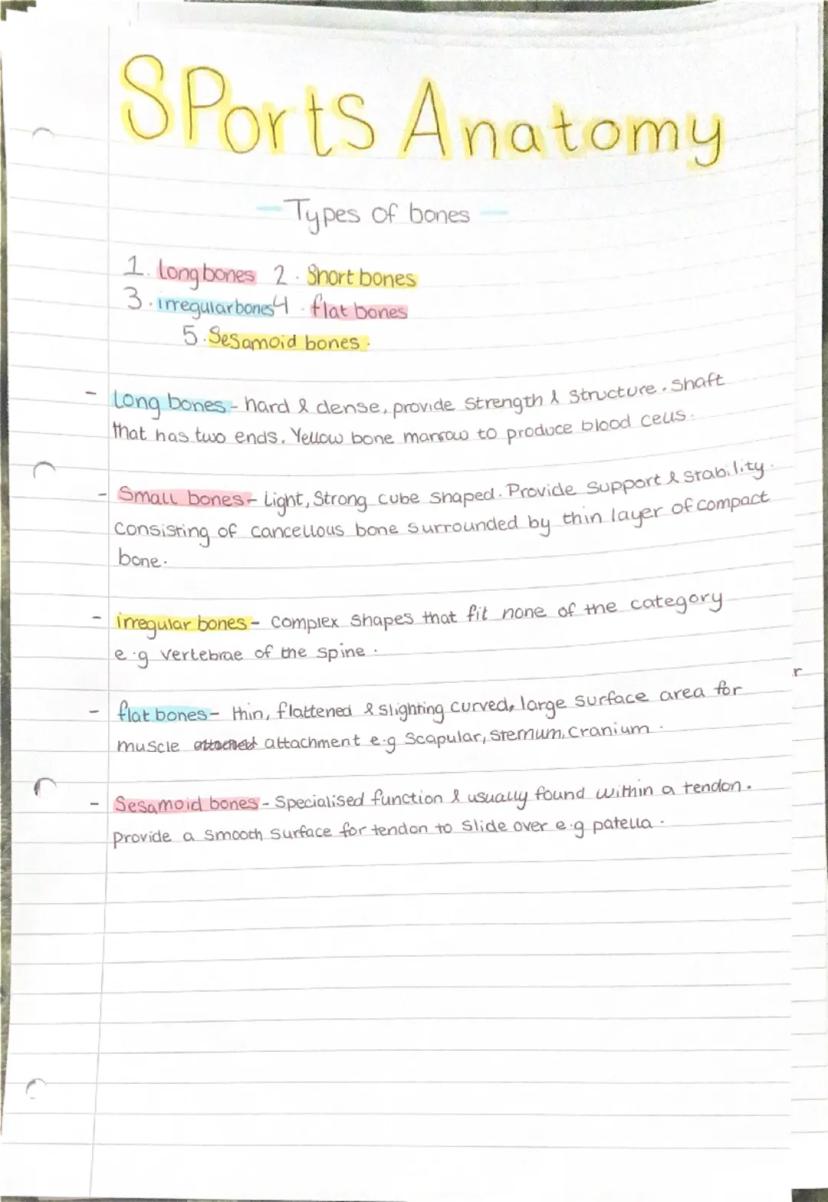 SPorts Anatomy
- Types of bones -
1. Long bones 2. Short bones
3. irregular bones 4. flat bones
5. Sesamoid bones.
- Long bones - hard & dense, provide strength & structure. Shaft
that has two ends. Yellow bone marrow to produce blood cells.
- Small bones - Light, Strong cube shaped. Provide support & stability.
consisting of cancellous bone surrounded by thin layer of compact
bone.
- irregular bones - complex shapes that fit none of the category
e.g vertebrae of the spine.
- flat bones - thin, flattened & slighting curved, large surface area for
muscle attached attachment e.g Scapular, Sternum, Cranium.
- Sesamoid bones - Specialised function & usually found within a tendon.
provide a smooth surface for tendon to slide over e.g patella.
r